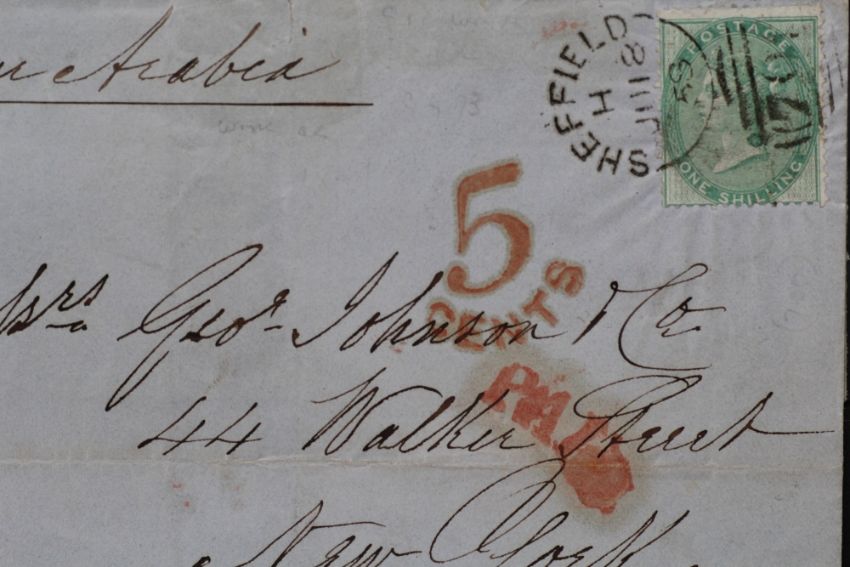 Arabia
SHEFFIELD
H
8
POSTAGE
ONE SHILLING
5
CENTS
PAID
Msrs Geoe Johnson & Co
44 Walker Street
New York